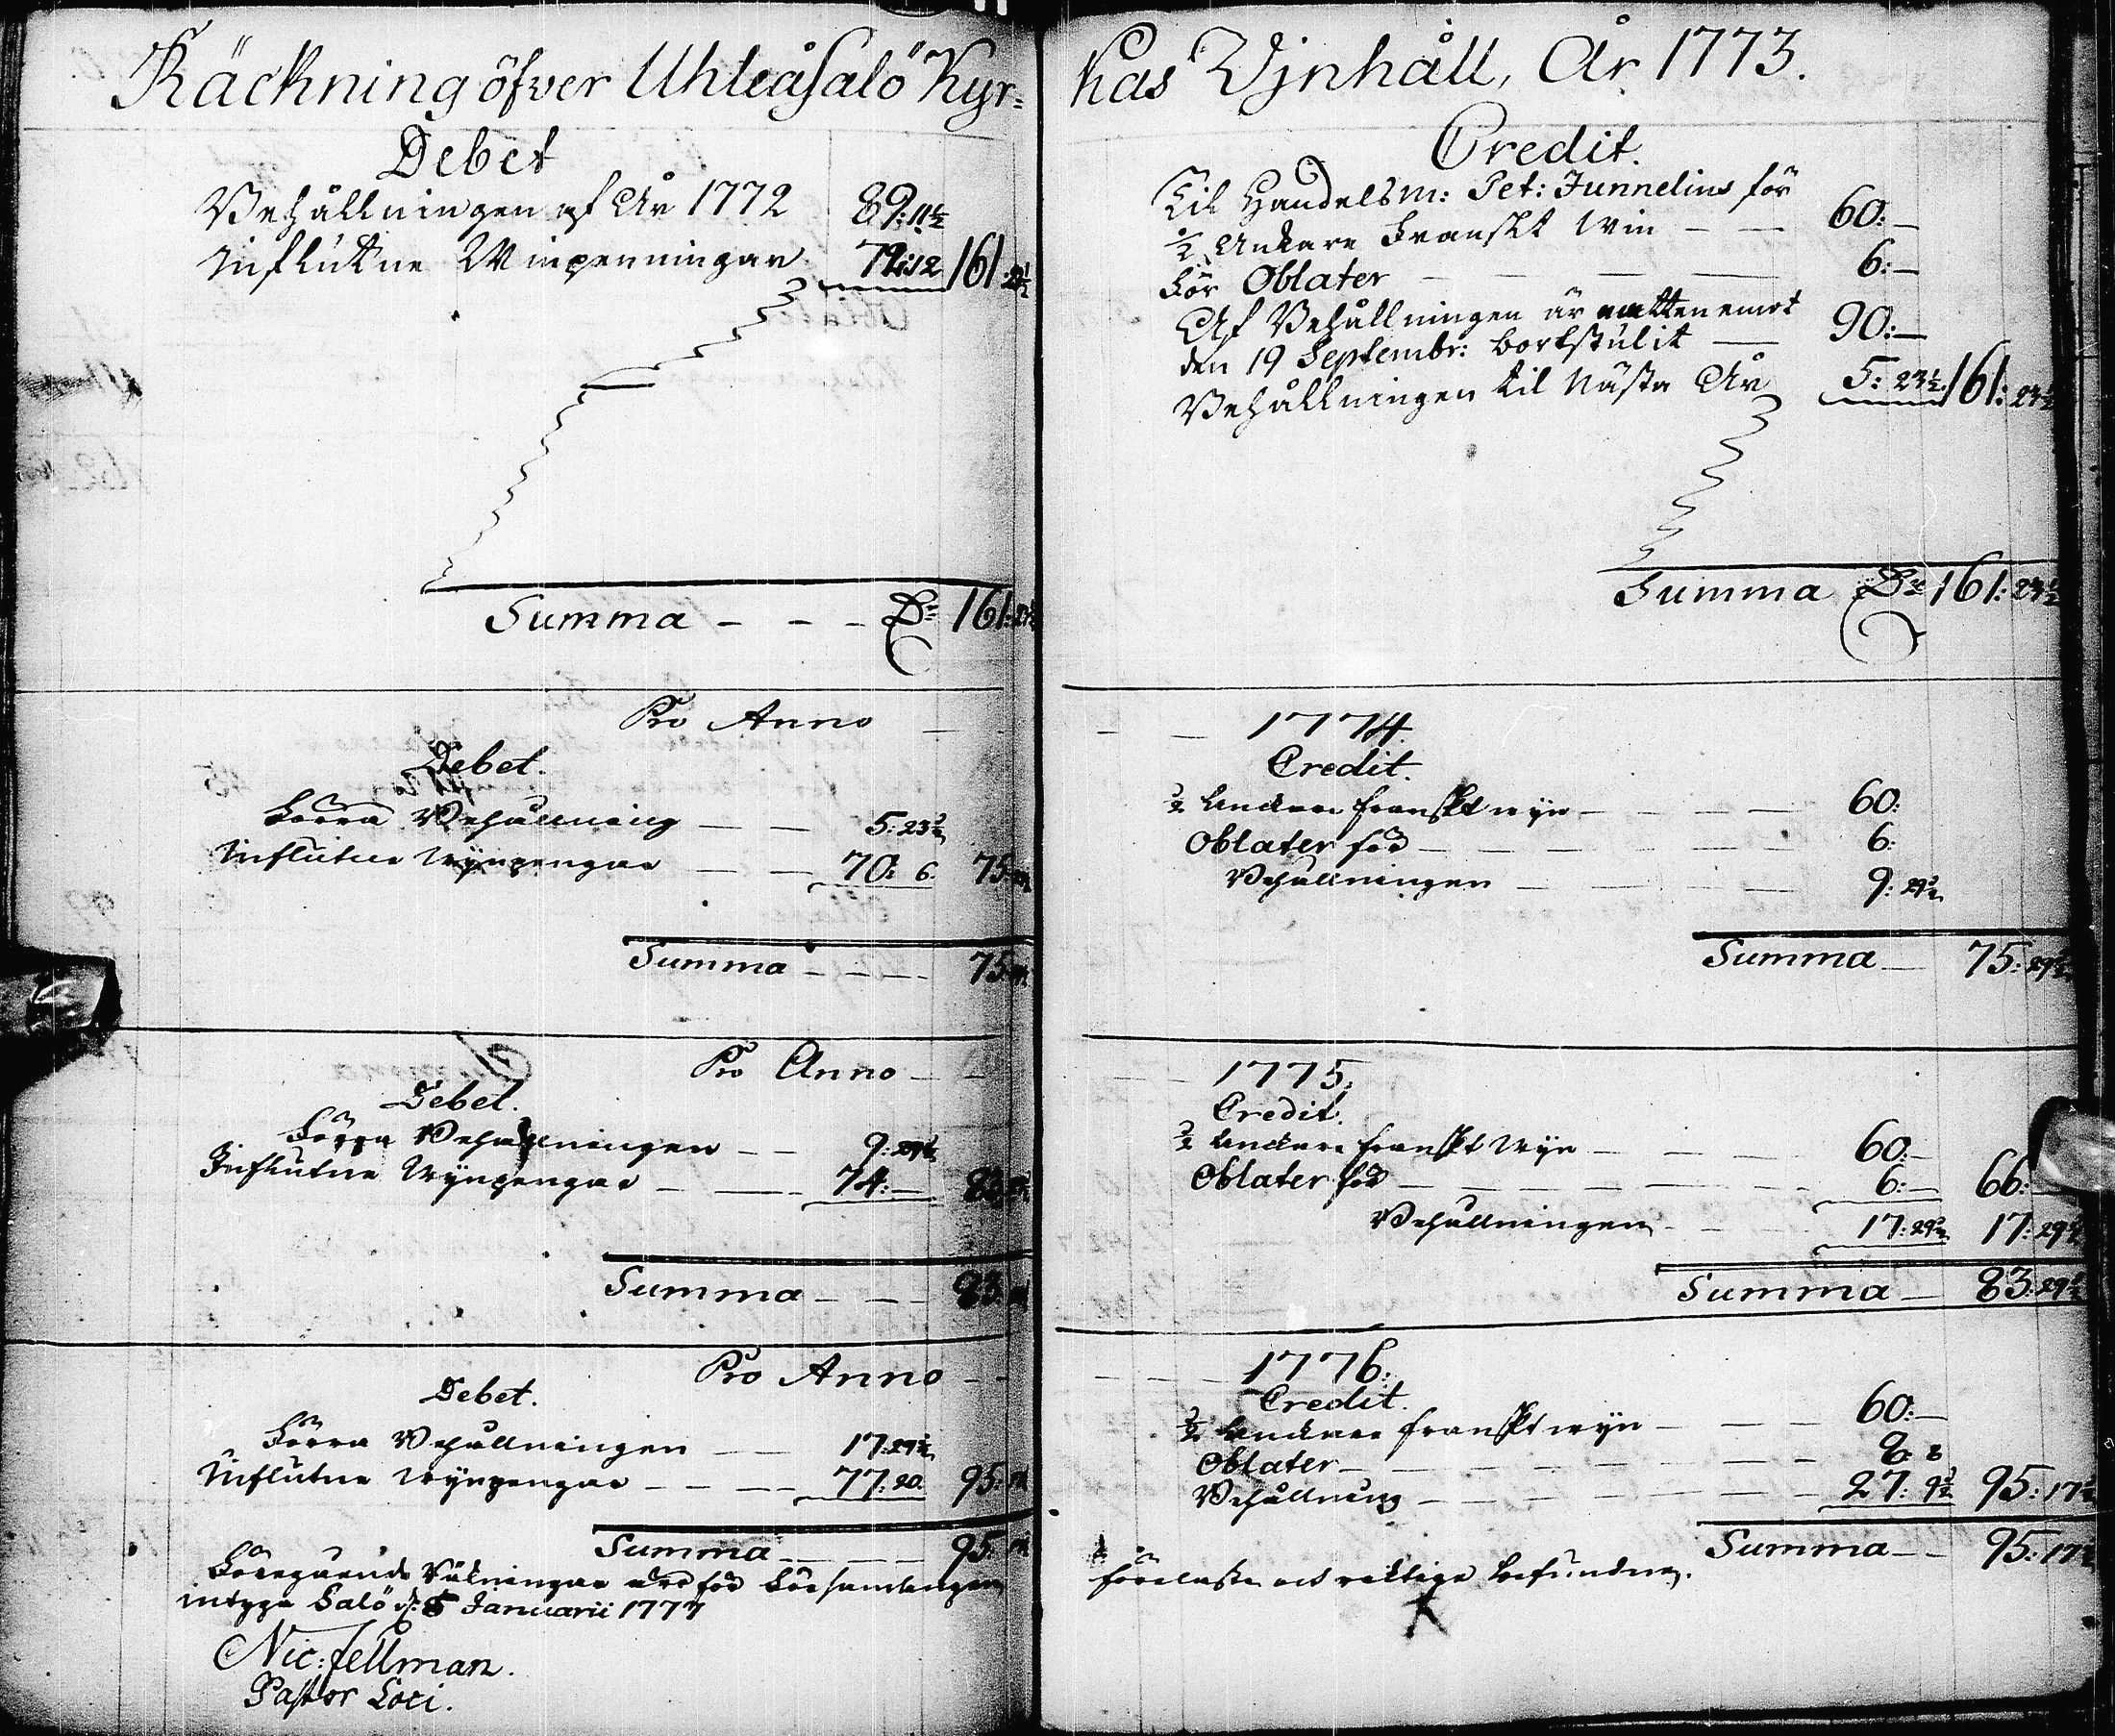 Räckning öfver Uhleåsalo Kyr=
Debet
Behållningen af År 1772 89: 11½
Influtne Winpenningar 72: 12 161: 23½
Summa - - - Dr 161: 23½
Pro Anno
Debet.
Förra Behållning 5: 23½
Influtne Wynpengar 70: 6. 75:
Summa - - - - 75:
Pro Anno
Debet.
Förra Behållningen 9: 29½
Influtne Wynpengar 74: — 83:
Summa - - - 83:
Pro Anno
Debet.
Förra Behållningen 17: 29½
Influtne Wynpengar 77: 20. 95:
Summa - - - - 95:
Föregående Räkningar för Församlingen
intyga Salö d: 5 Januarii 1777
Nic: Fellman.
Pastor Loci.
kas Vjnhåll, År 1773.
Credit.
Til Handelsm: Pet: Junnelius för
½ Ankare Franskt Win - - 60: —
För Oblater 6: —
Af Behållningen är natten emot
den 19 Septembr: bortstulit — 90: —
Behållningen til Nästa År 5: 23½. 161: 23½
Summa Dr 161: 23½
1774.
Credit.
½ Ankare franskt wyn 60:
Oblater för 6:
Behållningen 9: 29½
Summa 75: 29½
1775.
Credit.
½ Ankare franskt Wyn 60: —
Oblater för 6: — 66: —
Behållningen 17: 29½ 17: 29½
Summa — 83: 29½
1776:
Credit.
½ Ankare franskt wyn 60: —
Oblater 8: 8
Behållning 27: 9½ 95: 17½
Summa - - 95: 17½
föreläste och riktige befundne.